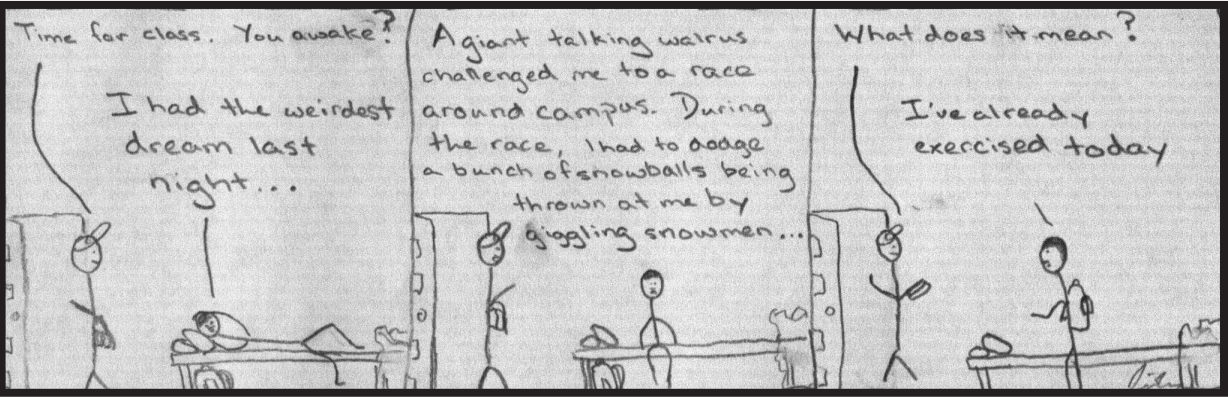 Time for class. You awake?
I had the weirdest
dream last
night...
A giant talking walrus
challenged me to a race
around campus. During
the race, I had to dodge
a bunch of snowballs being
thrown at me by
giggling snowmen...
What does it mean?
I've already
exercised today